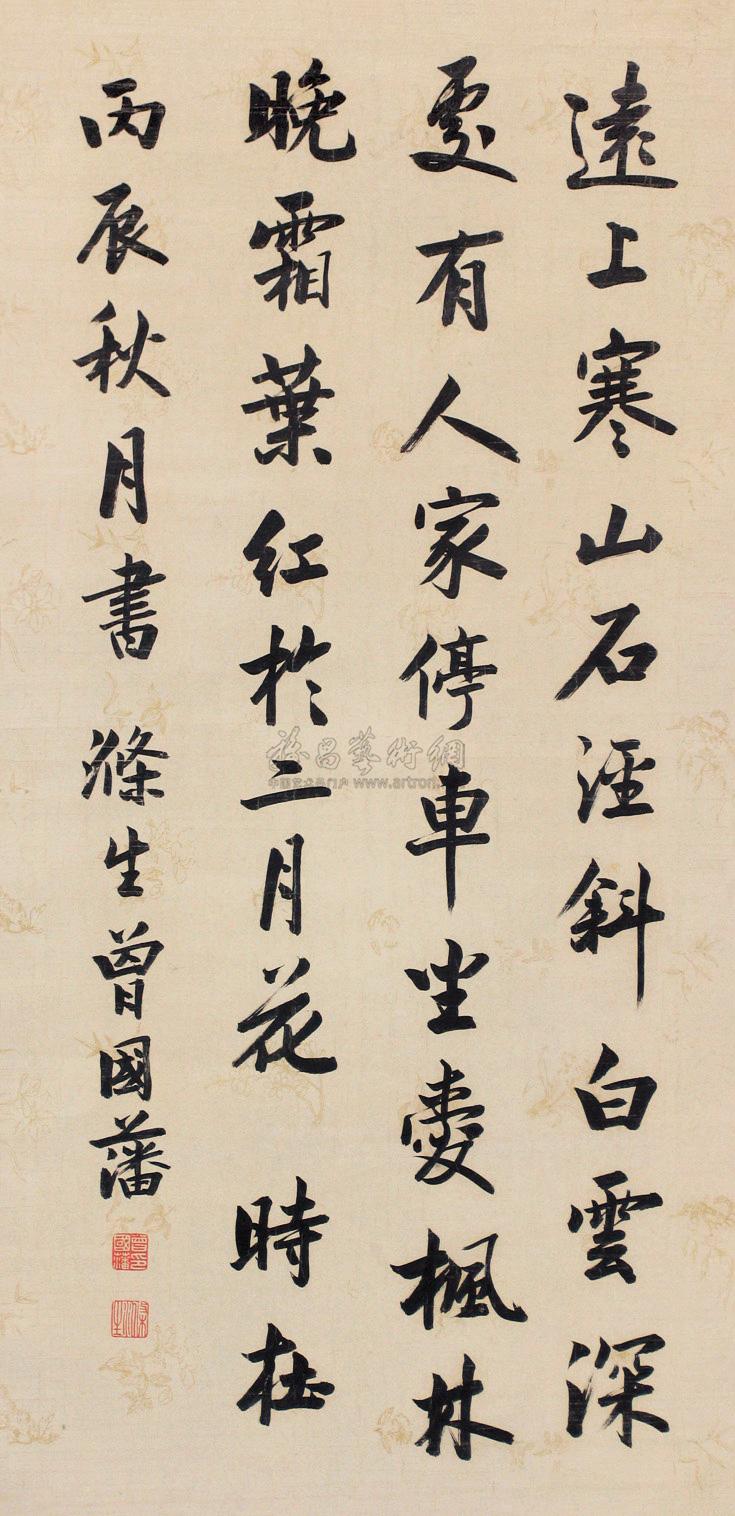 遠上寒山石涇斜白雲深
處有人家停車坐愛楓林
晚霜葉紅於二月花 時在
丙辰秋月書 滌生曾國藩
曾國藩印
滌生
雅昌藝術網
中国艺术品门户 www.artron.